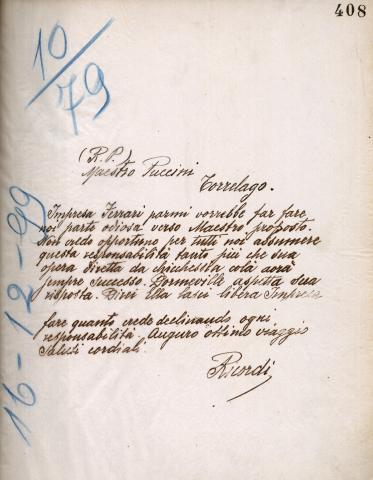 408
10/79
16-12-99
(R.P.)
Maestro Puccini
Torrelago.
Impresa Ferrari parmi vorrebbe far fare
noi parte odiosa verso Maestro proposto.
Non credo opportuno per tutti noi assumere
questa responsabilità tanto più che sua
opera diretta da chichessita colà avrà
sempre successo. Dormeville aspetta sua
risposta. Direi Ella lasci libera Impresa
fare quanto crede declinando ogni
responsabilità. Auguro ottimo viaggio
Saluti cordiali
Ricordi